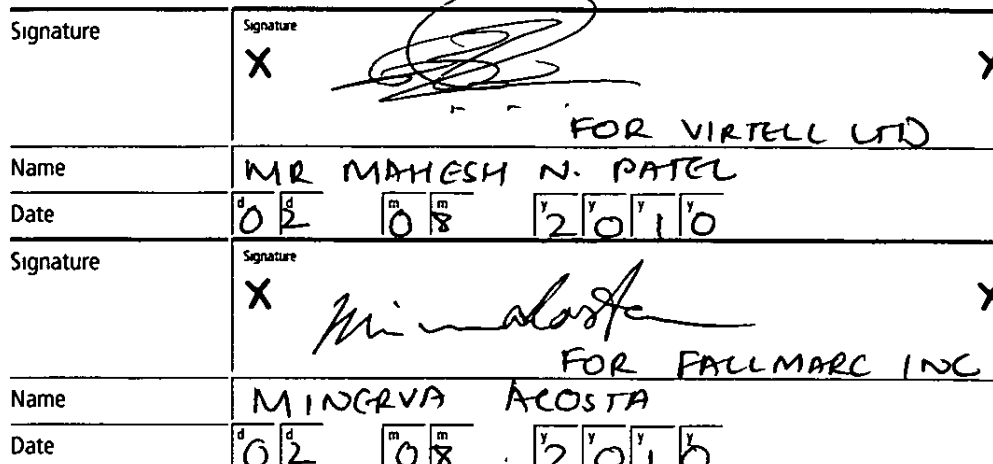 Signature Signature
X
FOR VIRTELL LTD
Name MR MAHESH N. PATEL
Date d0 d2 m0 m8 y2 y0 y1 y0
Signature Signature
X Minervacosta
FOR FALLMARC INC
Name MINERVA ACOSTA
Date d0 d2 m0 m8 y2 y0 y1 y0